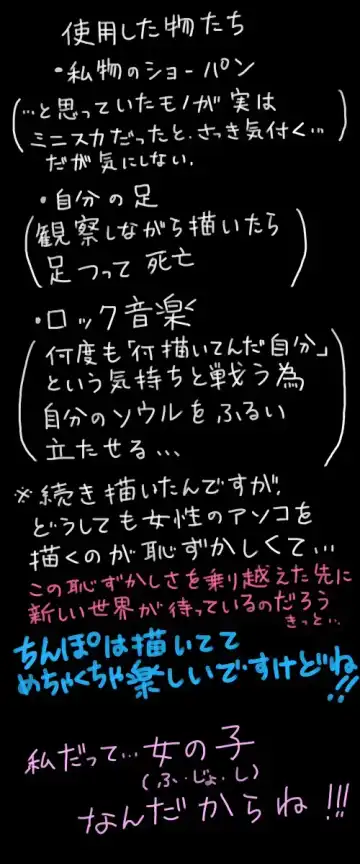 使用した物たち
・私物のショーパン
(…と思っていたモノが実は
ミニスカだったと、さっき気付く…
だが気にしない。)
・自分の足
(観察しながら描いたら
足つって死亡)
・ロック音楽
(何度も「何描いてんだ自分」
という気持ちと戦う為
自分のソウルをふるい
立たせる…)
※続き描いたんですが、
どうしても女性のアソコを
描くのが恥ずかしくて…
この恥ずかしさを乗り越えた先に
新しい世界が待っているのだろう
きっと…
ちんぽは描いてて
めちゃくちゃ楽しいですけどね!!
私だって…女の子
(ふ・じょ・し)
なんだからね!!!